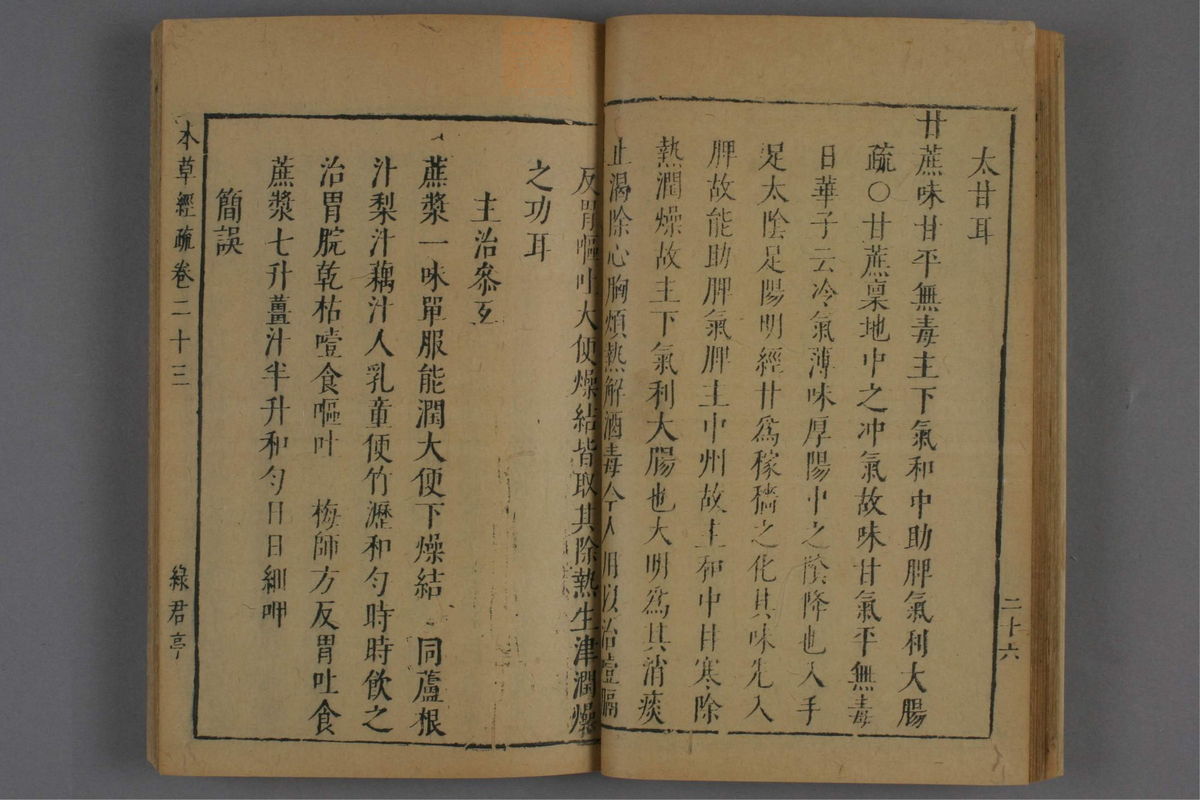 太甘耳
甘蔗味甘平無毒主下氣和中助脾氣利大腸
疏○甘蔗稟地中之冲氣故味甘氣平無毒
日華子云冷氣薄味厚陽中之陰降也入手
足太陰足陽明經甘爲稼穡之化其味先入
脾故能助脾氣脾主中州故主和中甘寒除
熱潤燥故主下氣利大腸也大明爲其消痰
止渴除心胸煩熱解酒毒今人用以治噎膈
反胃嘔吐大便燥結皆取其除熱生津潤燥
之功耳
主治叅互
蔗漿一味單服能潤大便下燥結 同蘆根
汁梨汁藕汁人乳童便竹瀝和勻時時飲之
治胃脘乾枯噎食嘔吐 梅師方反胃吐食
蔗漿七升薑汁半升和勻日日細呷
簡誤
二十六
本草經疏卷二十三
綠君亭